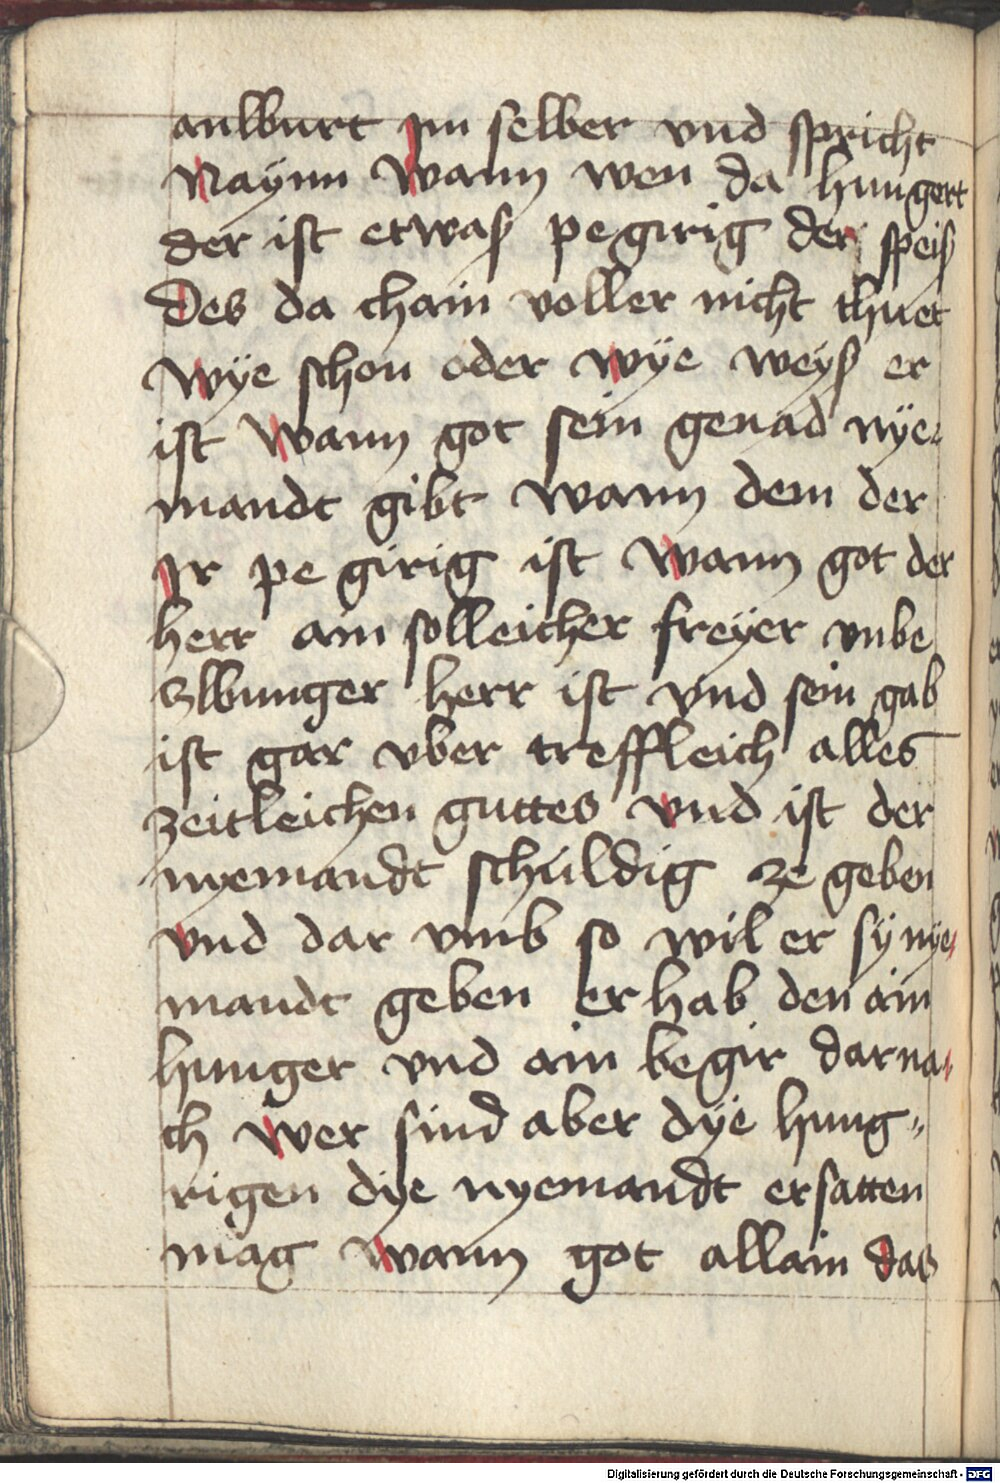 antburt im selber vnd spricht
Naynn Wann wen da hungert
der ist etwaß pegirig der speiß
Des da chain voller nicht thuet
wÿe schon oder wÿe weyß er
ist Wann got sein genad nÿe-
mandt gibt wann dem der
Ir pegirig ist Wann got der
herr ain solleicher freÿer vnbe
zbunger herr ist vnd sein gab
ist gar vber treffleich alles
zeitleichen guttes vnd ist der
nyemandt schuldig ze geben
vnd dar vmb so wil er sÿ nye-
mandt geben er hab den ain
hunger vnd ain begir darna-
ch wer sind aber dÿe hung-
rigen dÿe nyemandt ersatten
mag wann got allain das
Digitalisierung gefördert durch die Deutsche Forschungsgemeinschaft - DFG